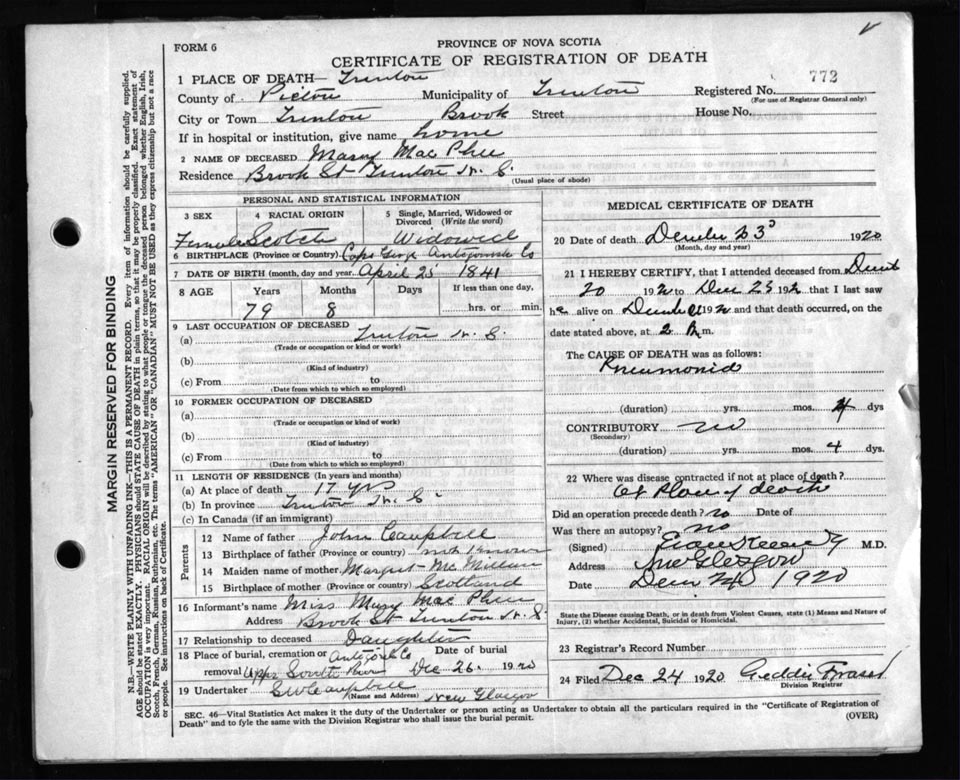 FORM 6
PROVINCE OF NOVA SCOTIA
CERTIFICATE OF REGISTRATION OF DEATH
772
1 PLACE OF DEATH— Trenton
County of Pictou Municipality of Trenton Registered No.
(For use of Registrar General only)
City or Town Trenton Brook Street House No.
If in hospital or institution, give name home
2 NAME OF DECEASED Mary Mac Phee
Residence Brook St Trenton N. S.
(Usual place of abode)
PERSONAL AND STATISTICAL INFORMATION
3 SEX 4 RACIAL ORIGIN 5 Single, Married, Widowed or Divorced (Write the word)
Female Scotch Widowed
6 BIRTHPLACE (Province or Country) Cape George Antigonish Co
7 DATE OF BIRTH (month, day and year) April 25 1841
8 AGE Years Months Days If less than one day,
79 8 hrs. or min.
9 LAST OCCUPATION OF DECEASED
(a) Trenton N. S.
(Trade or occupation or kind or work)
(b)
(Kind of industry)
(c) From to
(Date from which to which so employed)
10 FORMER OCCUPATION OF DECEASED
(a)
(Trade or occupation or kind of work)
(b)
(Kind of industry)
(c) From to
(Date from which to which so employed)
11 LENGTH OF RESIDENCE (In years and months)
(a) At place of death 17 yrs
(b) In province Trenton N. S.
(c) In Canada (if an immigrant)
Parents
12 Name of father John Campbell
13 Birthplace of father (Province or country) not known
14 Maiden name of mother Margret Mc Millan
15 Birthplace of mother (Province or country) Scotland
16 Informant's name Miss Mary Mac Phee
Address Brook St Trenton N. S.
17 Relationship to deceased Daughter
18 Place of burial, cremation or removal Antigonish Co Date of burial
South River Dec 26. 1920
19 Undertaker Campbell New Glasgow
(Name and Address)
MEDICAL CERTIFICATE OF DEATH
20 Date of death 23 1920
(Month, day and year)
21 I HEREBY CERTIFY, that I attended deceased from
20 192 to Dec 23 192 that I last saw
h alive on 192 and that death occurred, on the
date stated above, at 2 m.
The CAUSE OF DEATH was as follows:
Pneumonia
(duration) yrs. mos. 4 dys
CONTRIBUTORY no
(Secondary)
(duration) yrs. mos. 4 dys.
22 Where was disease contracted if not at place of death?
At Place of death
Did an operation precede death? no Date of
Was there an autopsy? no
(Signed) M.D.
Address New Glasgow
Date 24 1920
State the Disease causing Death, or in death from Violent Causes, state (1) Means and Nature of Injury, (2) whether Accidental, Suicidal or Homicidal.
23 Registrar's Record Number
24 Filed Dec 24 1920 Geddie Fraser
Division Registrar
SEC. 46—Vital Statistics Act makes it the duty of the Undertaker or person acting as Undertaker to obtain all the particulars required in the "Certificate of Registration of
Death" and to fyle the same with the Division Registrar who shall issue the burial permit.
(OVER)
MARGIN RESERVED FOR BINDING
N.B.—WRITE PLAINLY WITH UNFADING INK—THIS IS A PERMANENT RECORD. Every item of information should be carefully supplied.
AGE should be stated EXACTLY. PHYSICIANS should STATE CAUSE OF DEATH in plain terms, so that it may be properly classified. Exact statement of
OCCUPATION is very important. RACIAL ORIGIN will be described by stating to what people or tongue the deceased person belonged whether English, Irish,
Scotch, French, German, Russian, Ruthenian, etc. The terms "AMERICAN" OR "CANADIAN" MUST NOT BE USED as they express citizenship but not a race
or people. See instructions on back of Certificate.